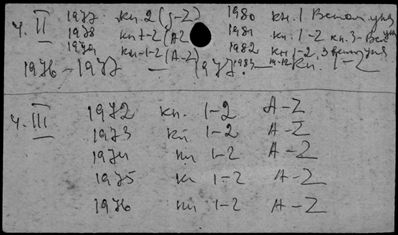 ч. II 1977 кн. 2 (J-Z) 1980 кн. 1
1978 кн 1-2 (A-Z) 1981 кн. 1-2 кн. 3-
1979 кн-1-2 (A-Z) 1982 кн 1-2. 3
1976-1977 - 1977. 1983 кн. 1-2
ч. III 1972 кн. 1-2 A-Z
1973 кн 1-2 A-Z
1974 кн 1-2 A-Z
1975 кн 1-2 A-Z
1976 кн 1-2 A-Z